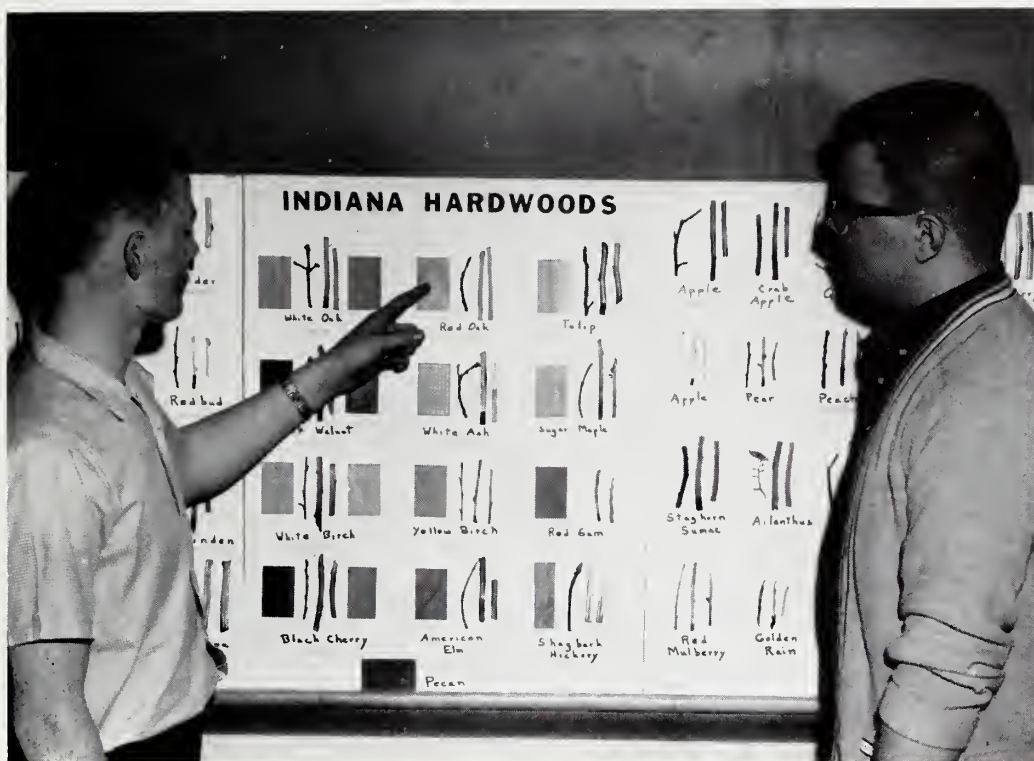 INDIANA HARDWOODS
White Oak
Red Oak
Tulip
Apple
Crab
Apple
Redbud
Walnut
White Ash
Sugar Maple
Apple
Pear
Peach
White Birch
Yellow Birch
Red Gum
Staghorn
Sumac
Ailanthus
Black Cherry
American
Elm
Shagbark
Hickory
Red
Mulberry
Golden
Rain
Pecan